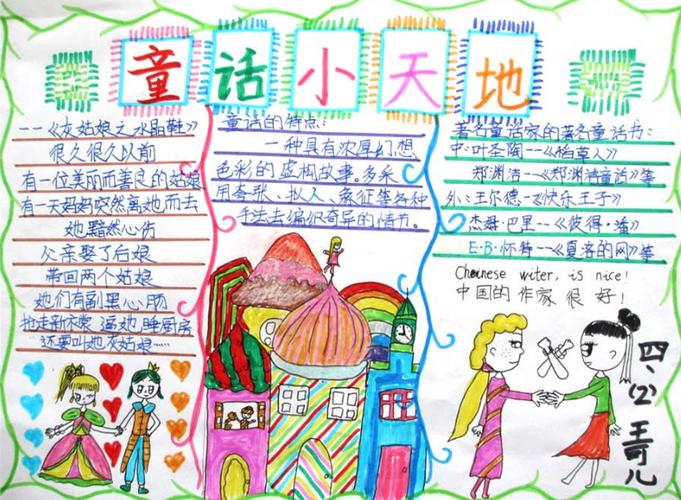 童话小天地
--《灰姑娘之水晶鞋》
很久很久以前
有一位美丽而善良的姑娘
有一天妈妈突然离她而去
她黯然心伤
父亲娶了后娘
带回两个姑娘
她们有副黑心肠
抢走新衣裳 逼她睡厨房
还要叫她灰姑娘……
童话的特点:
一种具有浓厚幻想
色彩的虚构故事。多采
用夸张、拟人、象征等各种
手法去编织奇异的情节。
著名童话家的著名童话书:
中:叶圣陶--《稻草人》
郑渊洁--《郑渊洁童话》等
外:王尔德-《快乐王子》
杰姆·巴里--《彼得·潘》
E·B·怀特--《夏洛的网》等
Cheinese witer, is nice!
中国的作家很好!
四、(2) 王可儿